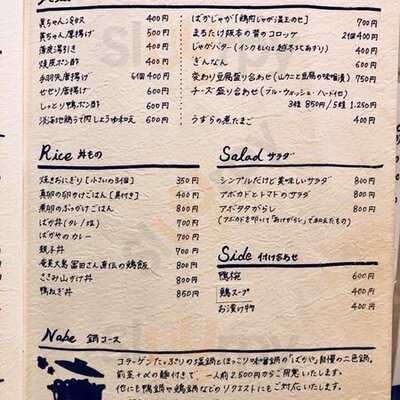 鶏ちゃん唐揚げ 500円
薄荒海引き 400円
焼皮ポン酢 400円
手羽先唐揚げ 6個 400円
せせり唐揚げ 600円
しっとり鴨ポン酢 600円
600円
ばかじゃが[鶏肉じゃが温玉のせ] 700円
まるたけ阪本の昔のコロッケ 2個 400円
じゃがバター
ぎんなん 600円
変わり豆腐盛り合わせ(山うに豆腐の味噌漬) 750円
チーズ盛り合わせ(ブルー・ウォッシュ・ハード他)
3種 850円/5種 1.250円
うずらの煮たまご 400円
Rice 丼もの
焼きおにぎり[小さいの3個] 350円
真卵の卵かけごはん[具付き] 400円
800円
ばか丼(タレ/塩) 700円
ばかやのカレー 700円
親子丼 700円
奄美大島 冨田さん直伝の鶏飯 800円
ささみ山かけ丼 800円
鴨ねぎ丼 850円
Salad サラダ
シンプルだけど美味しいサラダ 800円
アボカドとトマトのサラダ 800円
アボタタがらし 800円
(アボカドを叩いて「あけがらし」で和えたもの)
Side 付けあわせ
鴨椀 600円
鶏スープ 400円
お漬け物 400円
Nabe 鍋コース
コラーゲンたっぷりの塩鍋とほっこり味噌鍋の「ばかや」自慢の二色鍋。
前菜+αの麺付きで 一人前2,500円からご用意いたします。
他にも鴨鍋や鶏鍋などのリクエストにもご対応いたします。